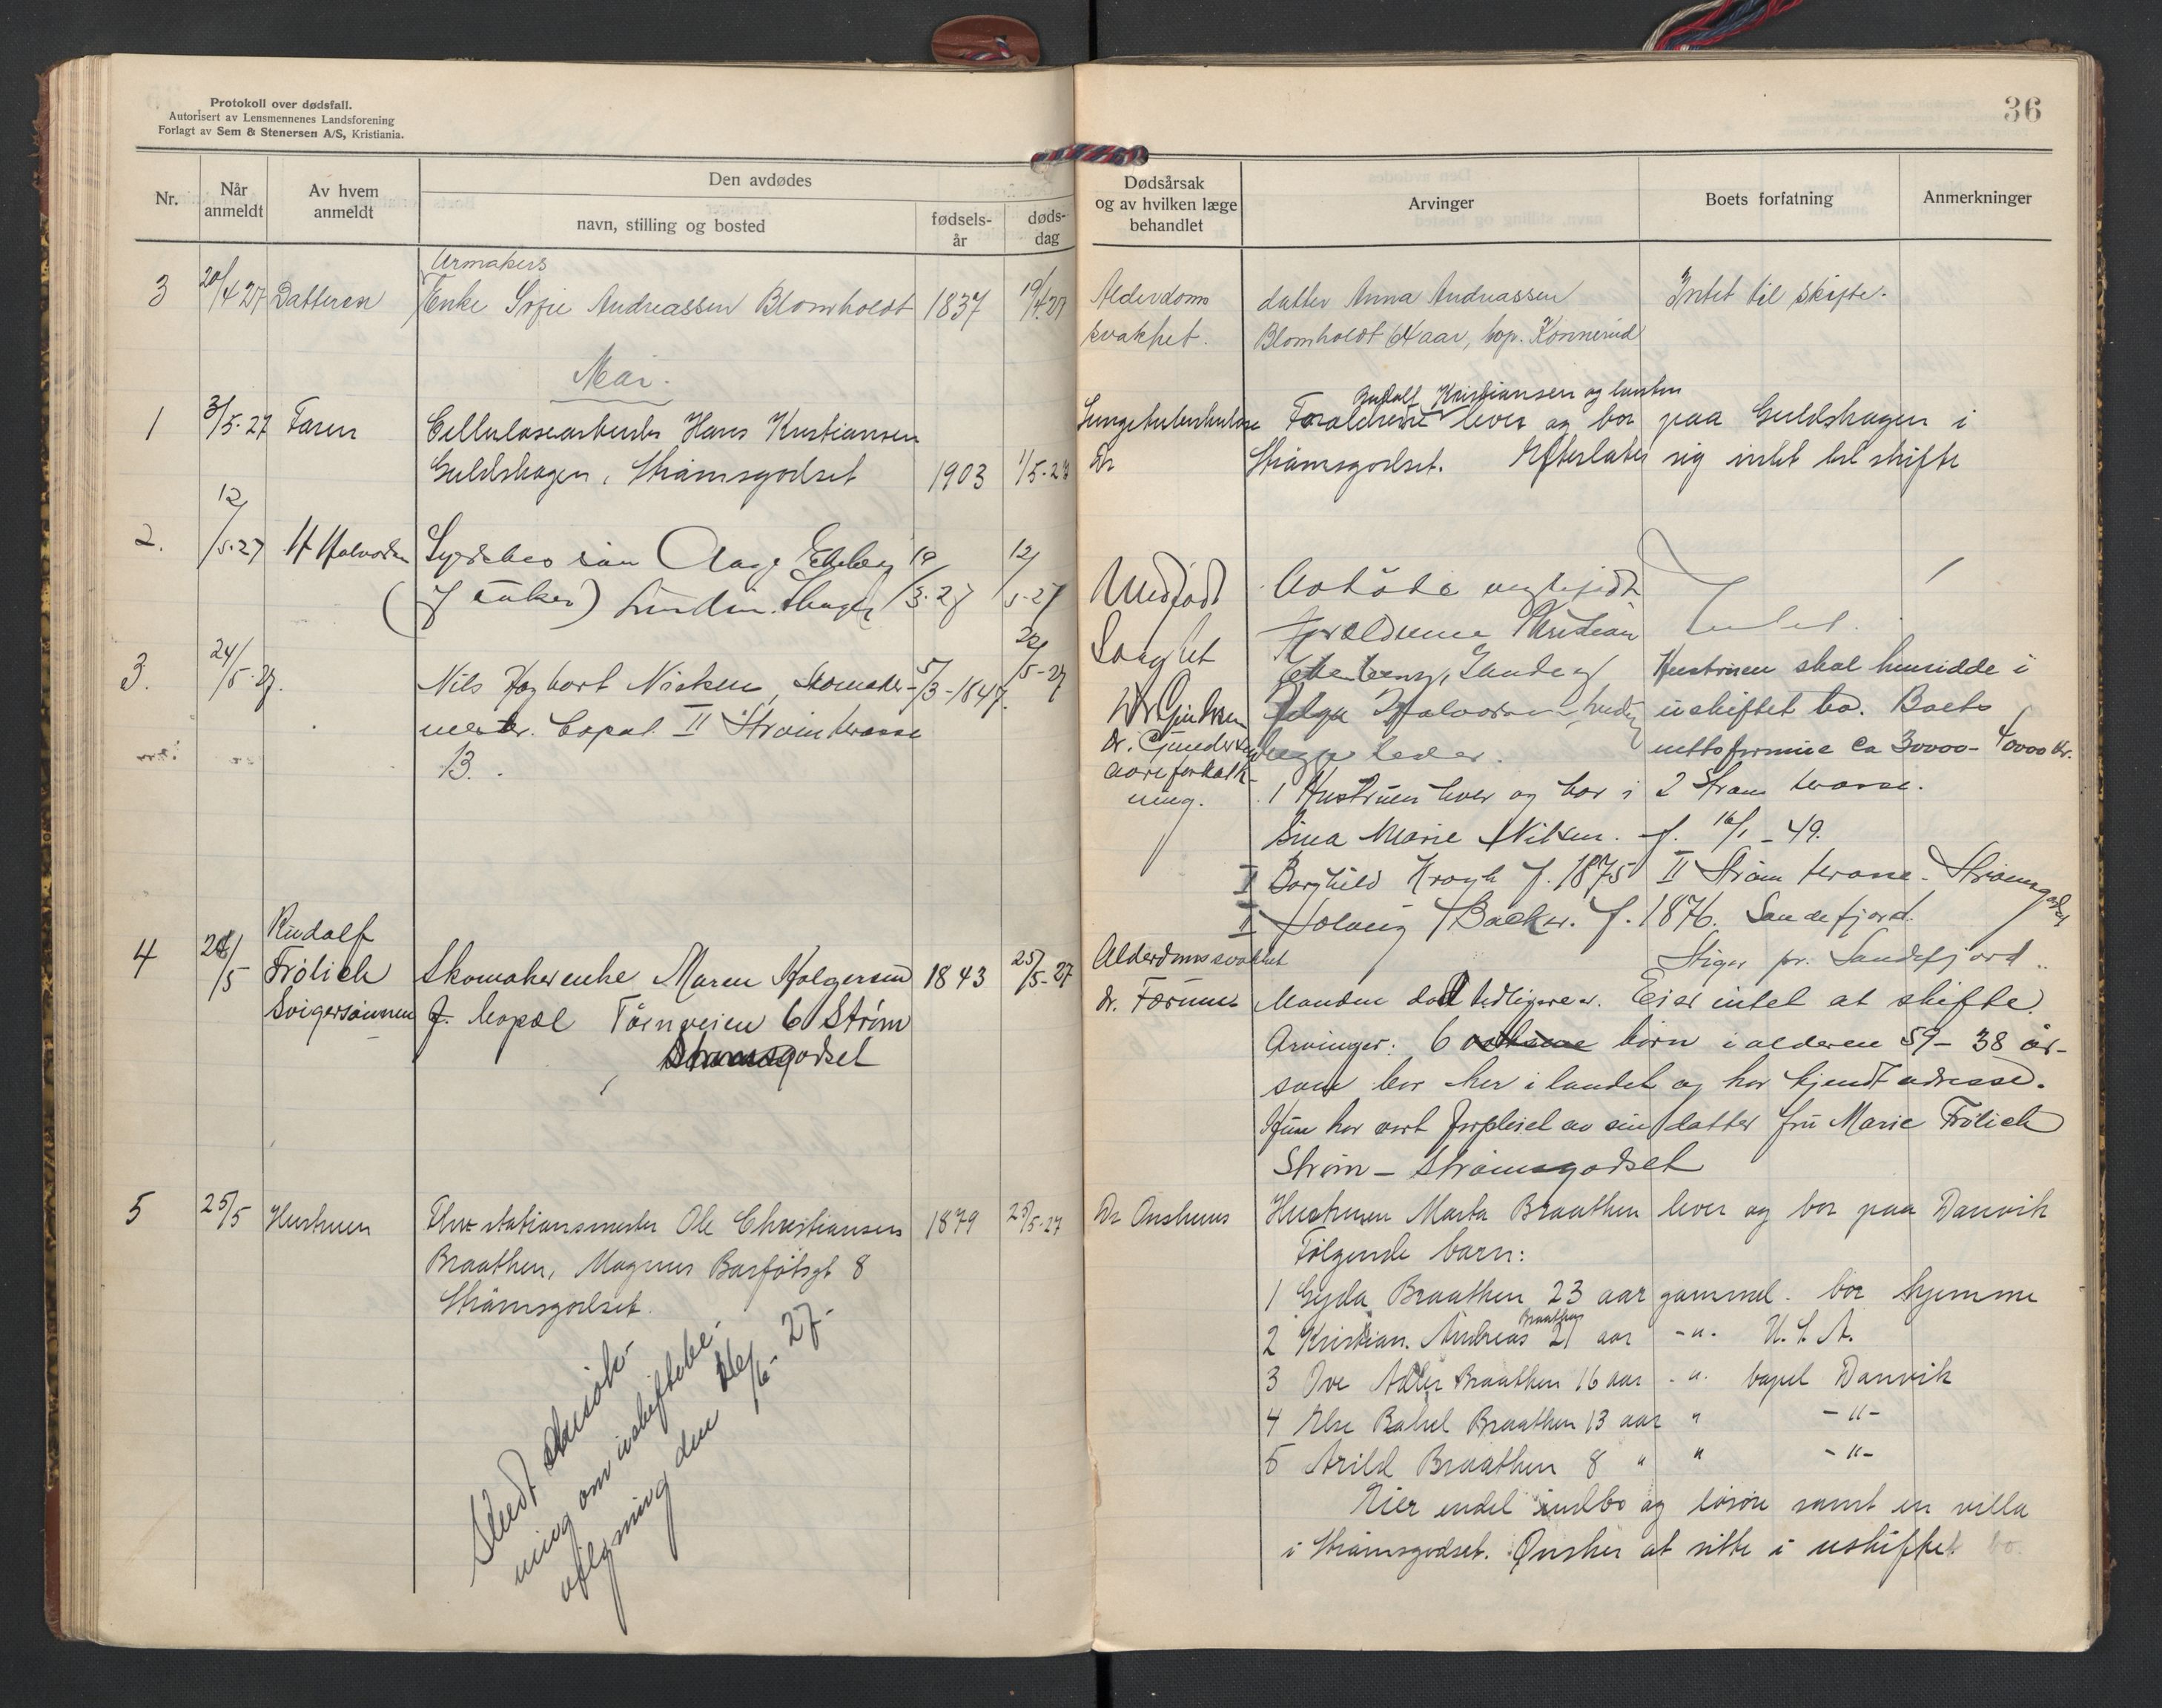 Protokoll over dødsfall.
Autorisert av Lensmennenes Landsforening
Forlagt av Sem & Stenersen A/S, Kristiania.
Nr.
Når anmeldt
Av hvem anmeldt
Den avdødes
navn, stilling og bosted
fødsels-år
døds-dag
3 20/4 27 Datteren
Urmakers
Enke Sofie Andreassen Blomholdt 1837 19/4.27
Mai.
1 3/5.27 Faren Cellulosearbeider Hans Kristiansen
Guldskogen, Strømsgodset 1903 1/5.27
2. 12/5.27 H Halvorsen
Aage
12/5-27
3. 24/5.27.
Nils Hagbart Nilsen, Skomaker- 5/3-1847. 22/5-27
mester. bopæl II Strømterasse
13.
4 28/5 Rudolf
Frølich
Svigersønnen
Skomakerenke Maren Holgersen 1843 25/5-27
f. bopæl Tårnveien 6 Strøm
Strømsgodset
5 25/5 Hustruen
stationsmester Ole Christiansen 1879 25/5-27
Braathen, Magnus Barfötsgt 8
Strømsgodset.
ning om uskiftebe-
den 16/6-27-
36
Dødsårsak
og av hvilken læge
behandlet
Arvinger
Boets forfatning
Anmerkninger
Alderdoms
svakhet.
datter Anna Andreassen
Blomholdt 64 aar, bop. Konnerud
Intet til skifte.
Lungetuberkulose
Dr
Rudolf Kristiansen og hustru
Foraldrene lever og bor paa Guldskogen i
Strømsgodset. Efterlater sig intet til skifte
Medfødt
Svaghet
Forældrene Kristian
Intet.
Helga Halvorsen
begge lever.
dr. Gundersen
aareforkalk-
ning.
Hustruen skal hensidde i
uskiftet bo. Boets
nettoformue ca 30000-40000 kr.
1 Hustruen lever og bor i 2 Strøm terasse.
Sina Marie Nilsen. f. 16/1-49.
II Borghild Krogh f. 1875 II Strøm terasse - Strømsgodset
II Solveig Backer. f. 1876. Sandefjord.
pr. Sandefjord
Alderdomssvakhet
dr. Forum
Manden død tidligere. Eier intet at skifte.
Arvinger: 6 børn i alderen 59-38 år-
som bor her i landet og har kjendt adresse.
Hun har vært forpleiet av sin datter fru Marie Frölich
Strøm - Strømsgodset
Dr Onshuus
Hustruen Marta Braathen lever og bor paa Danvik
Følgende barn:
1 Gyda Braathen 23 aar gammel. bor hjemme
2 Kristian. Andreas Braathen 21 aar -"- U.S.A.
3 Ove Adler Braathen 16 aar -"- bopel Danvik
4 Else Braathen 13 aar " -"-
5 Arild Braathen 8 " " -"-
Eier endel indbo og løsøre samt en villa
i Strømsgodset. Ønsker at sitte i uskiftet bo.